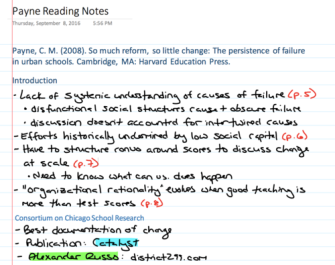 Payne Reading Notes
Thursday, September 8, 2016 3:56 PM
Payne, C. M. (2008). So much reform, so little change: The persistence of failure
in urban schools. Cambridge, MA: Harvard Education Press.
Introduction
- Lack of systemic understanding of causes of failure (p.5)
• disfunctional social structures cause + obscure failure
• discussion doesn't accounted for intertwined causes
- Efforts historically undermined by low social capital (p.6)
- Have to structure convo around scores to discuss change
at scale (p.7)
• Need to know what can vs. does happen
- "Organizational rationality" evokes when good teaching is
more than test scores (p.8)
Consortium on Chicago School Research
- Best documentation of change
- Publication: Catalyst
- Alexander Russo: district299.com